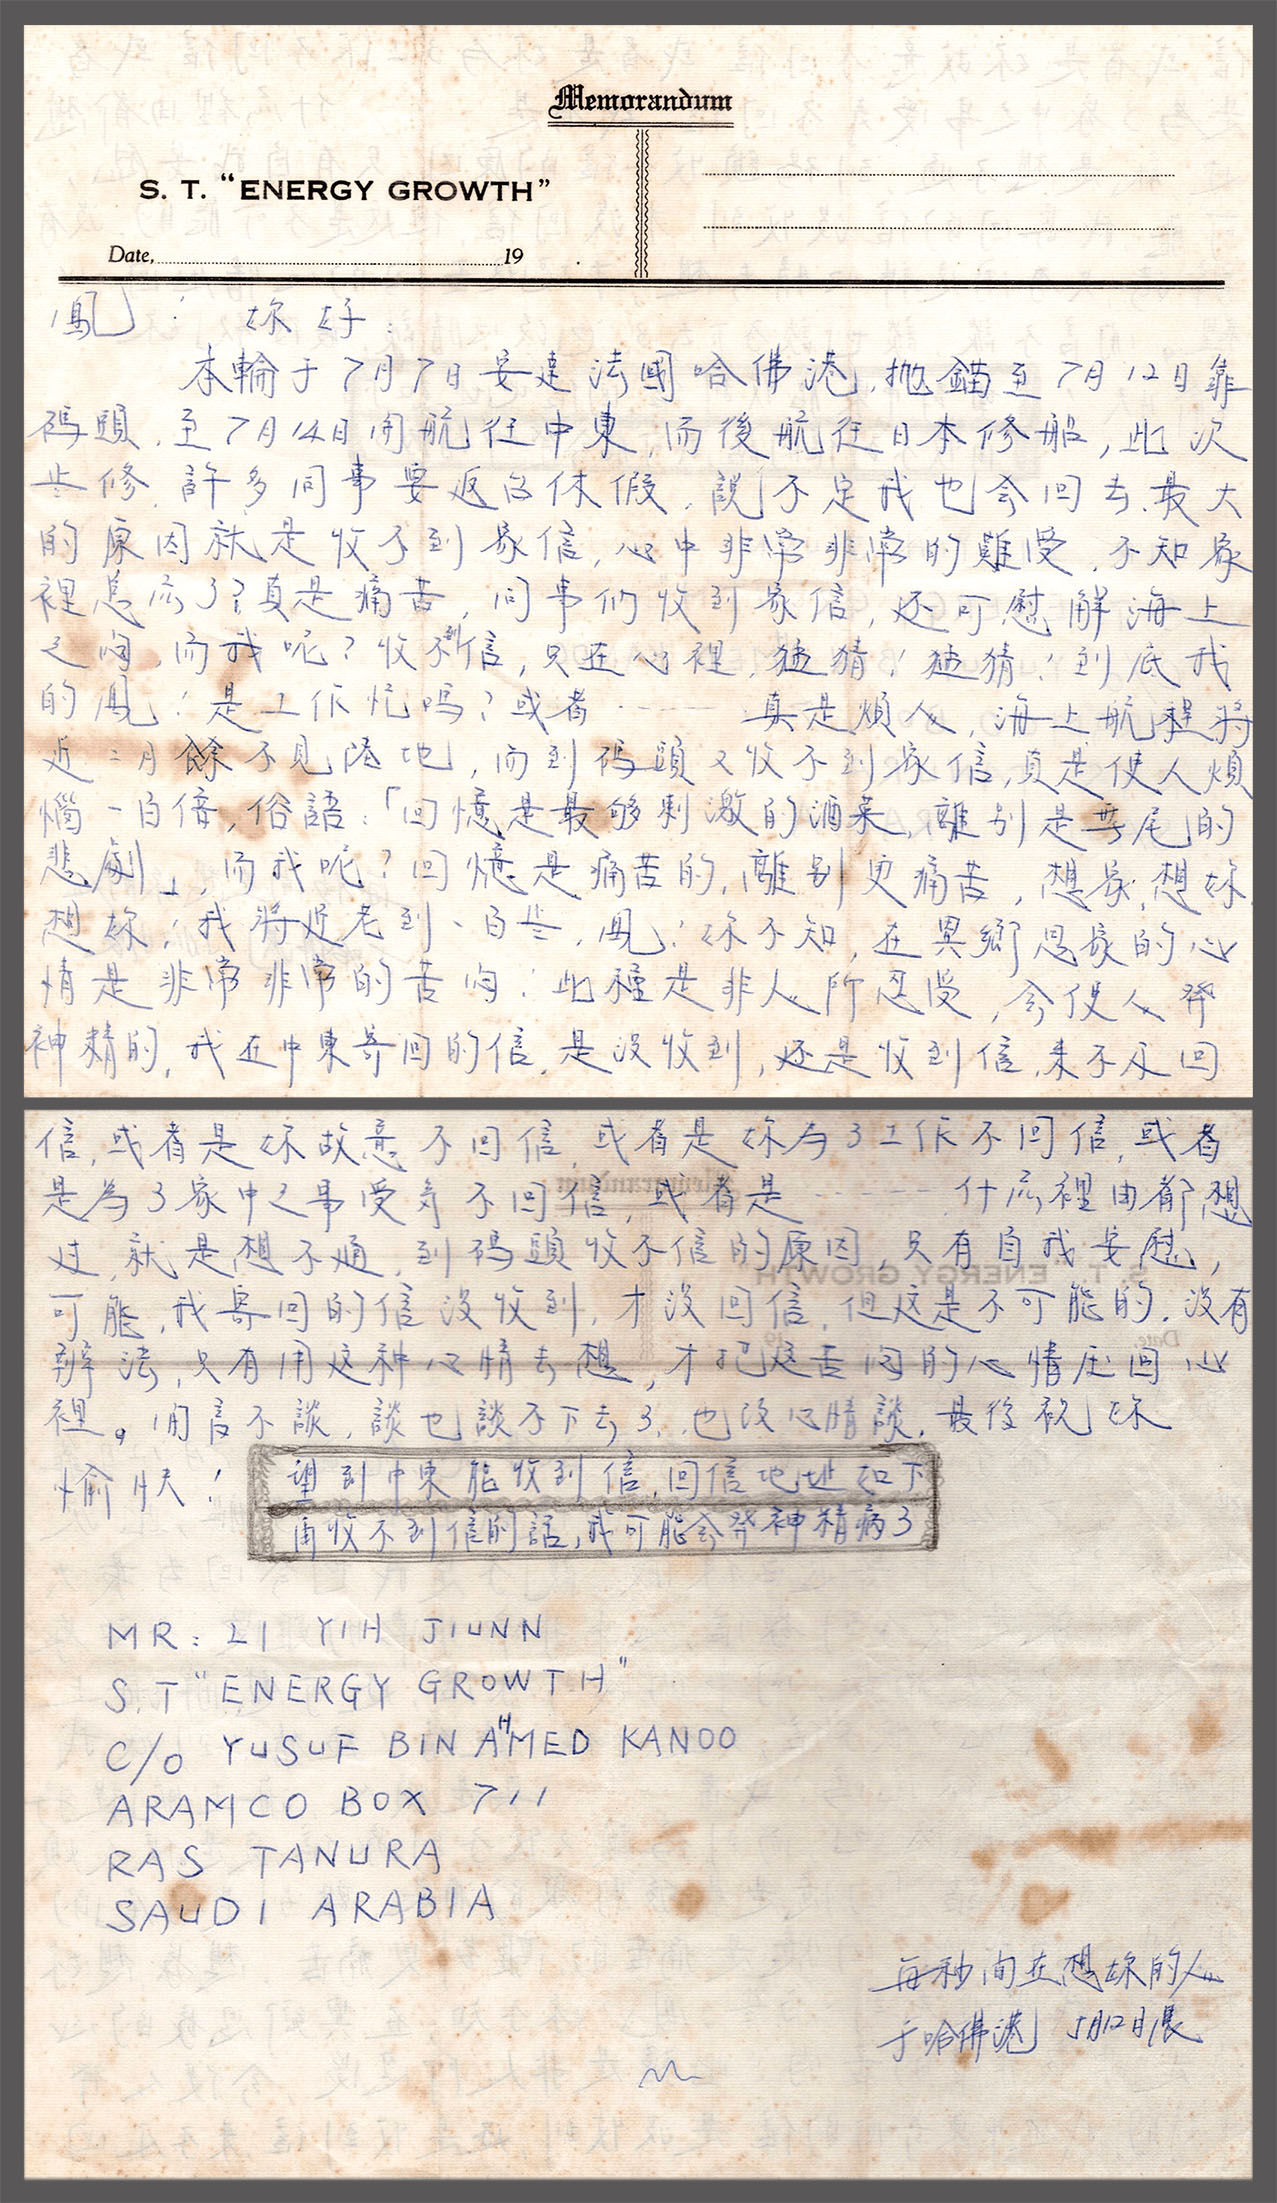 Memorandum
S. T. "ENERGY GROWTH"
Date, 19
鳳： 妳好：
本輪于7月7日安達法國哈佛港，抛錨至7月12日靠
碼頭，至7月14日開航往中東，而後航往日本修船，此次
歲修，許多同事要返台休假，說不定我也会回去，最大
的原因就是收不到家信，心中非常非常的難受，不知家
裡怎広了？真是痛苦，同事們收到家信，还可慰解海上
之悶，而我呢？收不到信，只在心裡，猜猜！猜猜！到底我
的鳳！是工作忙嗎？或者………真是煩人，海上航程將
近二月餘不見陸地，而到碼頭又收不到家信，真是使人煩
惱一百倍，俗語：「回憶是最够刺激的酒菜，離别是無尾的
悲劇」，而我呢？回憶是痛苦的，離别更痛苦，想家，想妳
想妳！我將近老到一百歲，鳳！妳不知，在異鄉思家的心
情是非常非常的苦悶！此種是非人所忍受，会使人發
神精的，我在中東寄回的信，是没收到，还是收到信，来不及回
信，或者是妳故意不回信，或者是妳為了工作不回信，或者
是為了家中之事受氣不回信，或者是………什広裡由都想
过，就是想不通，到碼頭收不信的原因，只有自我安慰，
可能，我寄回的信没收到，才没回信，但这是不可能的，没有
辦法，只有用这种心情去想，才把这苦悶的心情压回心
裡。閒言不談，談也談不下去了，也没心情談，最後祝妳
愉快！ 望到中東能收到信，回信地址如下
再收不到信的話，我可能会發神精病了
MR: LI YIH JIUNN
S.T "ENERGY GROWTH"
C/O YUSUF BIN AHMED KANOO
ARAMCO BOX 711
RAS TANURA
SAUDI ARABIA
每秒间在想妳的人
于哈佛港 7月12日晨